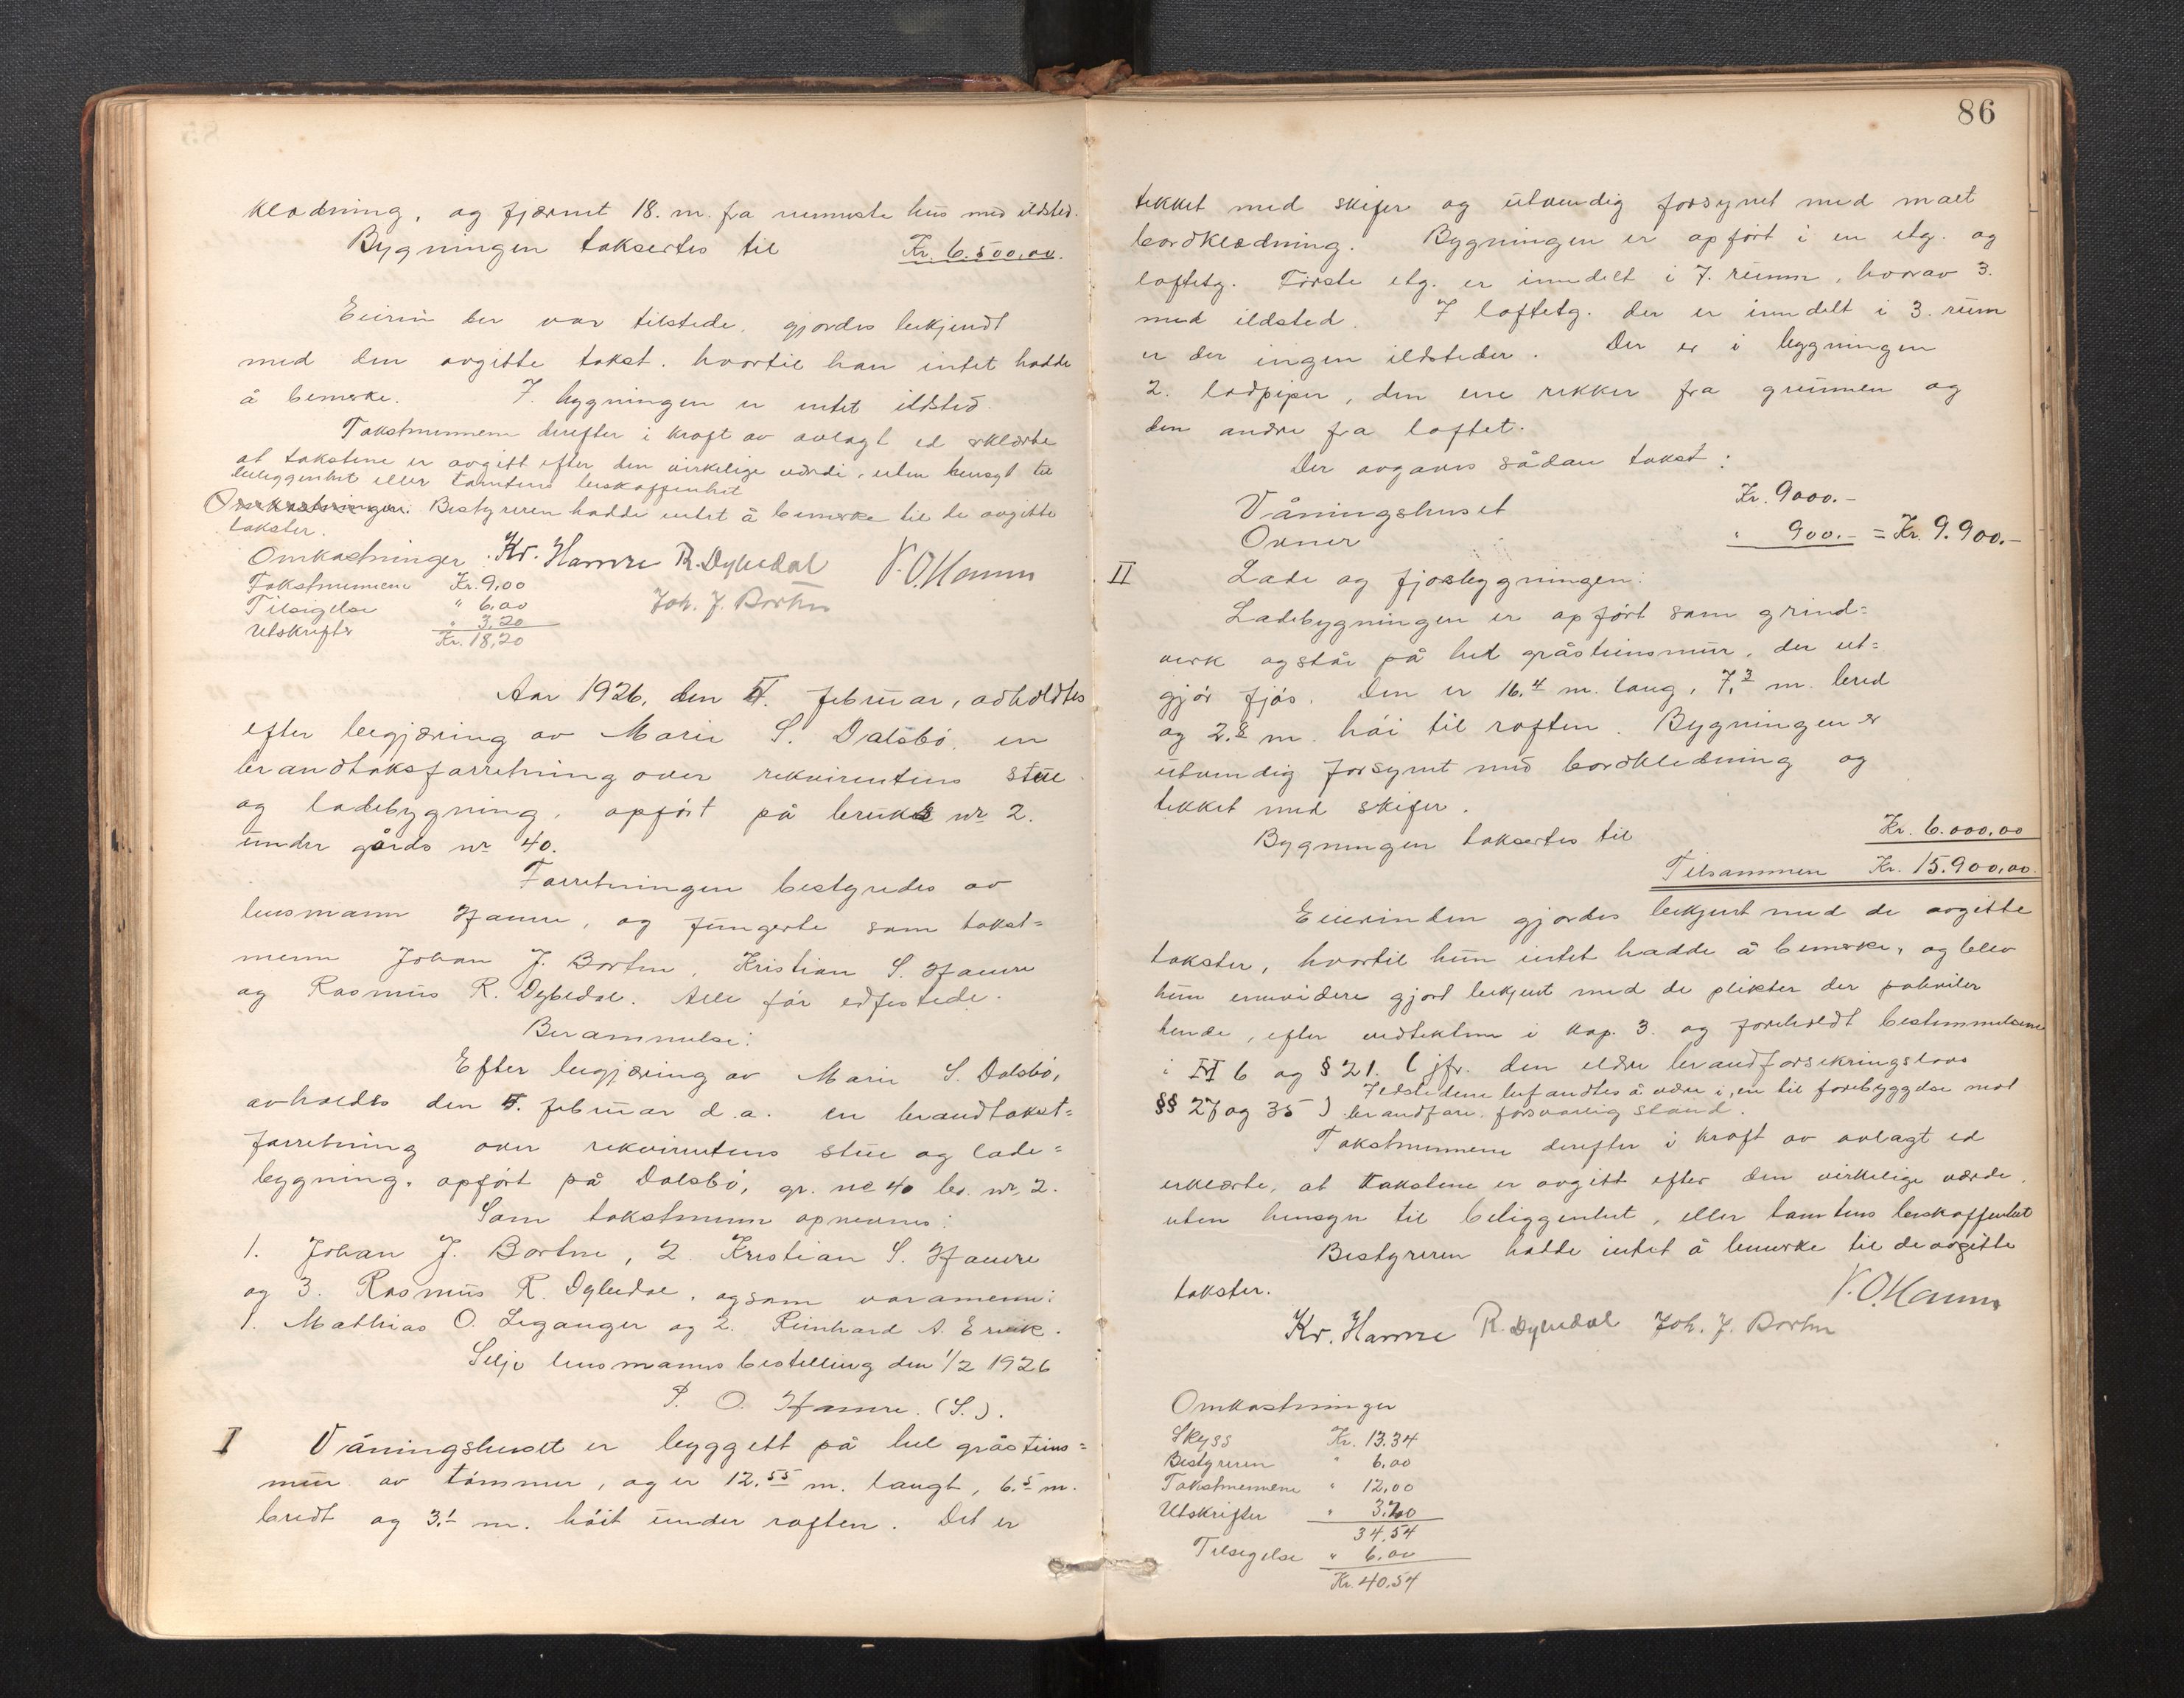 klædning, og fjærnet 18. m. fra nærmeste hus med ildsted.
Bygningen taksertes til Kr. 6.500,00.
Eieren der var tilstede, gjordes bekjendt
med den avgitte takst, hvortil han intet hadde
å bemerke. I bygningen er intet ildsted.
Takstmennene derefter i kraft av avlagt ed erklærte
at takstene er avgitt efter den virkelige værdi, uten hensyn til
beliggenhet eller tomtens beskaffenhet
Omkostninger. Bestyreren hadde intet å bemerke til de avgitte
takster.
Omkostninger: Kr. Hamre R. Dybedal P. O. Hamre
Takstmennene Kr. 9,00 Joh. J. Bortne
Tilsigelse " 6,00
Utskrifter " 3,20
Kr. 18,20
Aar 1926, den 5. februar, avholdtes
efter begjæring av Marie S. Dalsbö, en
brandtakstforretning over rekvirentens stue
og ladebygning, opfört på bruks nr 2.
under gårds nr 40.
Forretningen bestyredes av
lensmann Hamre, og fungerte som takst=
menn Johan J. Bortne, Kristian S. Hamre
og Rasmus R. Dybedal. Alle för edfestede.
Berammelse:
Efter begjæring av Marie S. Dalsbö,
avholdes den 5. februar d.a. en brandtakst=
forretning over rekvirentens stue og lade=
bygning, opfört på Dalsbö, gr. no 40 br. nr. 2.
Som takstmenn opnevnes:
1. Johan J. Bortne, 2. Kristian S. Hamre
og 3. Rasmus R. Dybedal, og som varamenn:
1. Mathias O. Leganger og 2. Reinhard A. Ervik.
Selje lensmannsbestilling den 1/2 1926
P. O. Hamre. (S.).
I Våningshuset er byggett på hel gråsteins=
mur av tömmer, og er 12.55 m. langt, 6.5 m.
bredt og 3.1 m. höit under raften. Det er
86
tekket med skifer og utvendig forsynet med malt
bordklædning. Bygningen er opfört i en etg. og
loftetg. Förste etg. er inndelt i 7. rumm, hvorav 3.
med ildsted. I loftetg. der er inndelt i 3. rum
er der ingen ildsteder. Der er i bygningen
2. ladpiper, den ene rekker fra grunnen og
den andre fra loftet.
Der avgaves sådan takst:
Våningshuset Kr. 9000.-
Ovner " 900.- = Kr. 9.900.-
II Lade og fjösbygningen:
Ladebygningen er opfört som grind=
verk og står på hel gråsteinsmur, der ut=
gjör fjös. Den er 16.4 m. lang, 7.3 m. bred
og 2.8 m. höi til raften. Bygningen er
utvendig forsynt med bordkledning og
tekket med skifer.
Bygningen taksertes til Kr. 6.000,00
Tilsammen Kr. 15.900,00.
Eierinden gjordes bekjent med de avgitte
takster, hvortil hun intet hadde å bemerke, og blev
hun ennvidere gjort bekjent med de plikter der påhviler
hende, efter vedtektene i kap. 3. og foreholdt bestemmelsene
i 6 og § 21. (jfr. den eldre brandforsikringslovs
§§ 27 og 35) Ildstedene befandtes å være i, en til forebyggelse mot
brandfare, forsvarlig stand.
Takstmennene derefter i kraft av avlagt ed
erklærte, at takstene er avgitt efter den virkelige værde,
uten hensyn til beliggenhet, eller tomtens beskaffenhet
Bestyreren hadde intet å bemerke til de avgitte
takster. P. O. Hamre
Kr. Hamre R. Dybedal Joh. J. Bortne
Omkostninger
Skyss Kr. 13.34
Bestyreren " 6,00
Takstmennene " 12,00
Utskrifter " 3,20
34,54
Tilsigelse " 6,00
Kr. 40,54